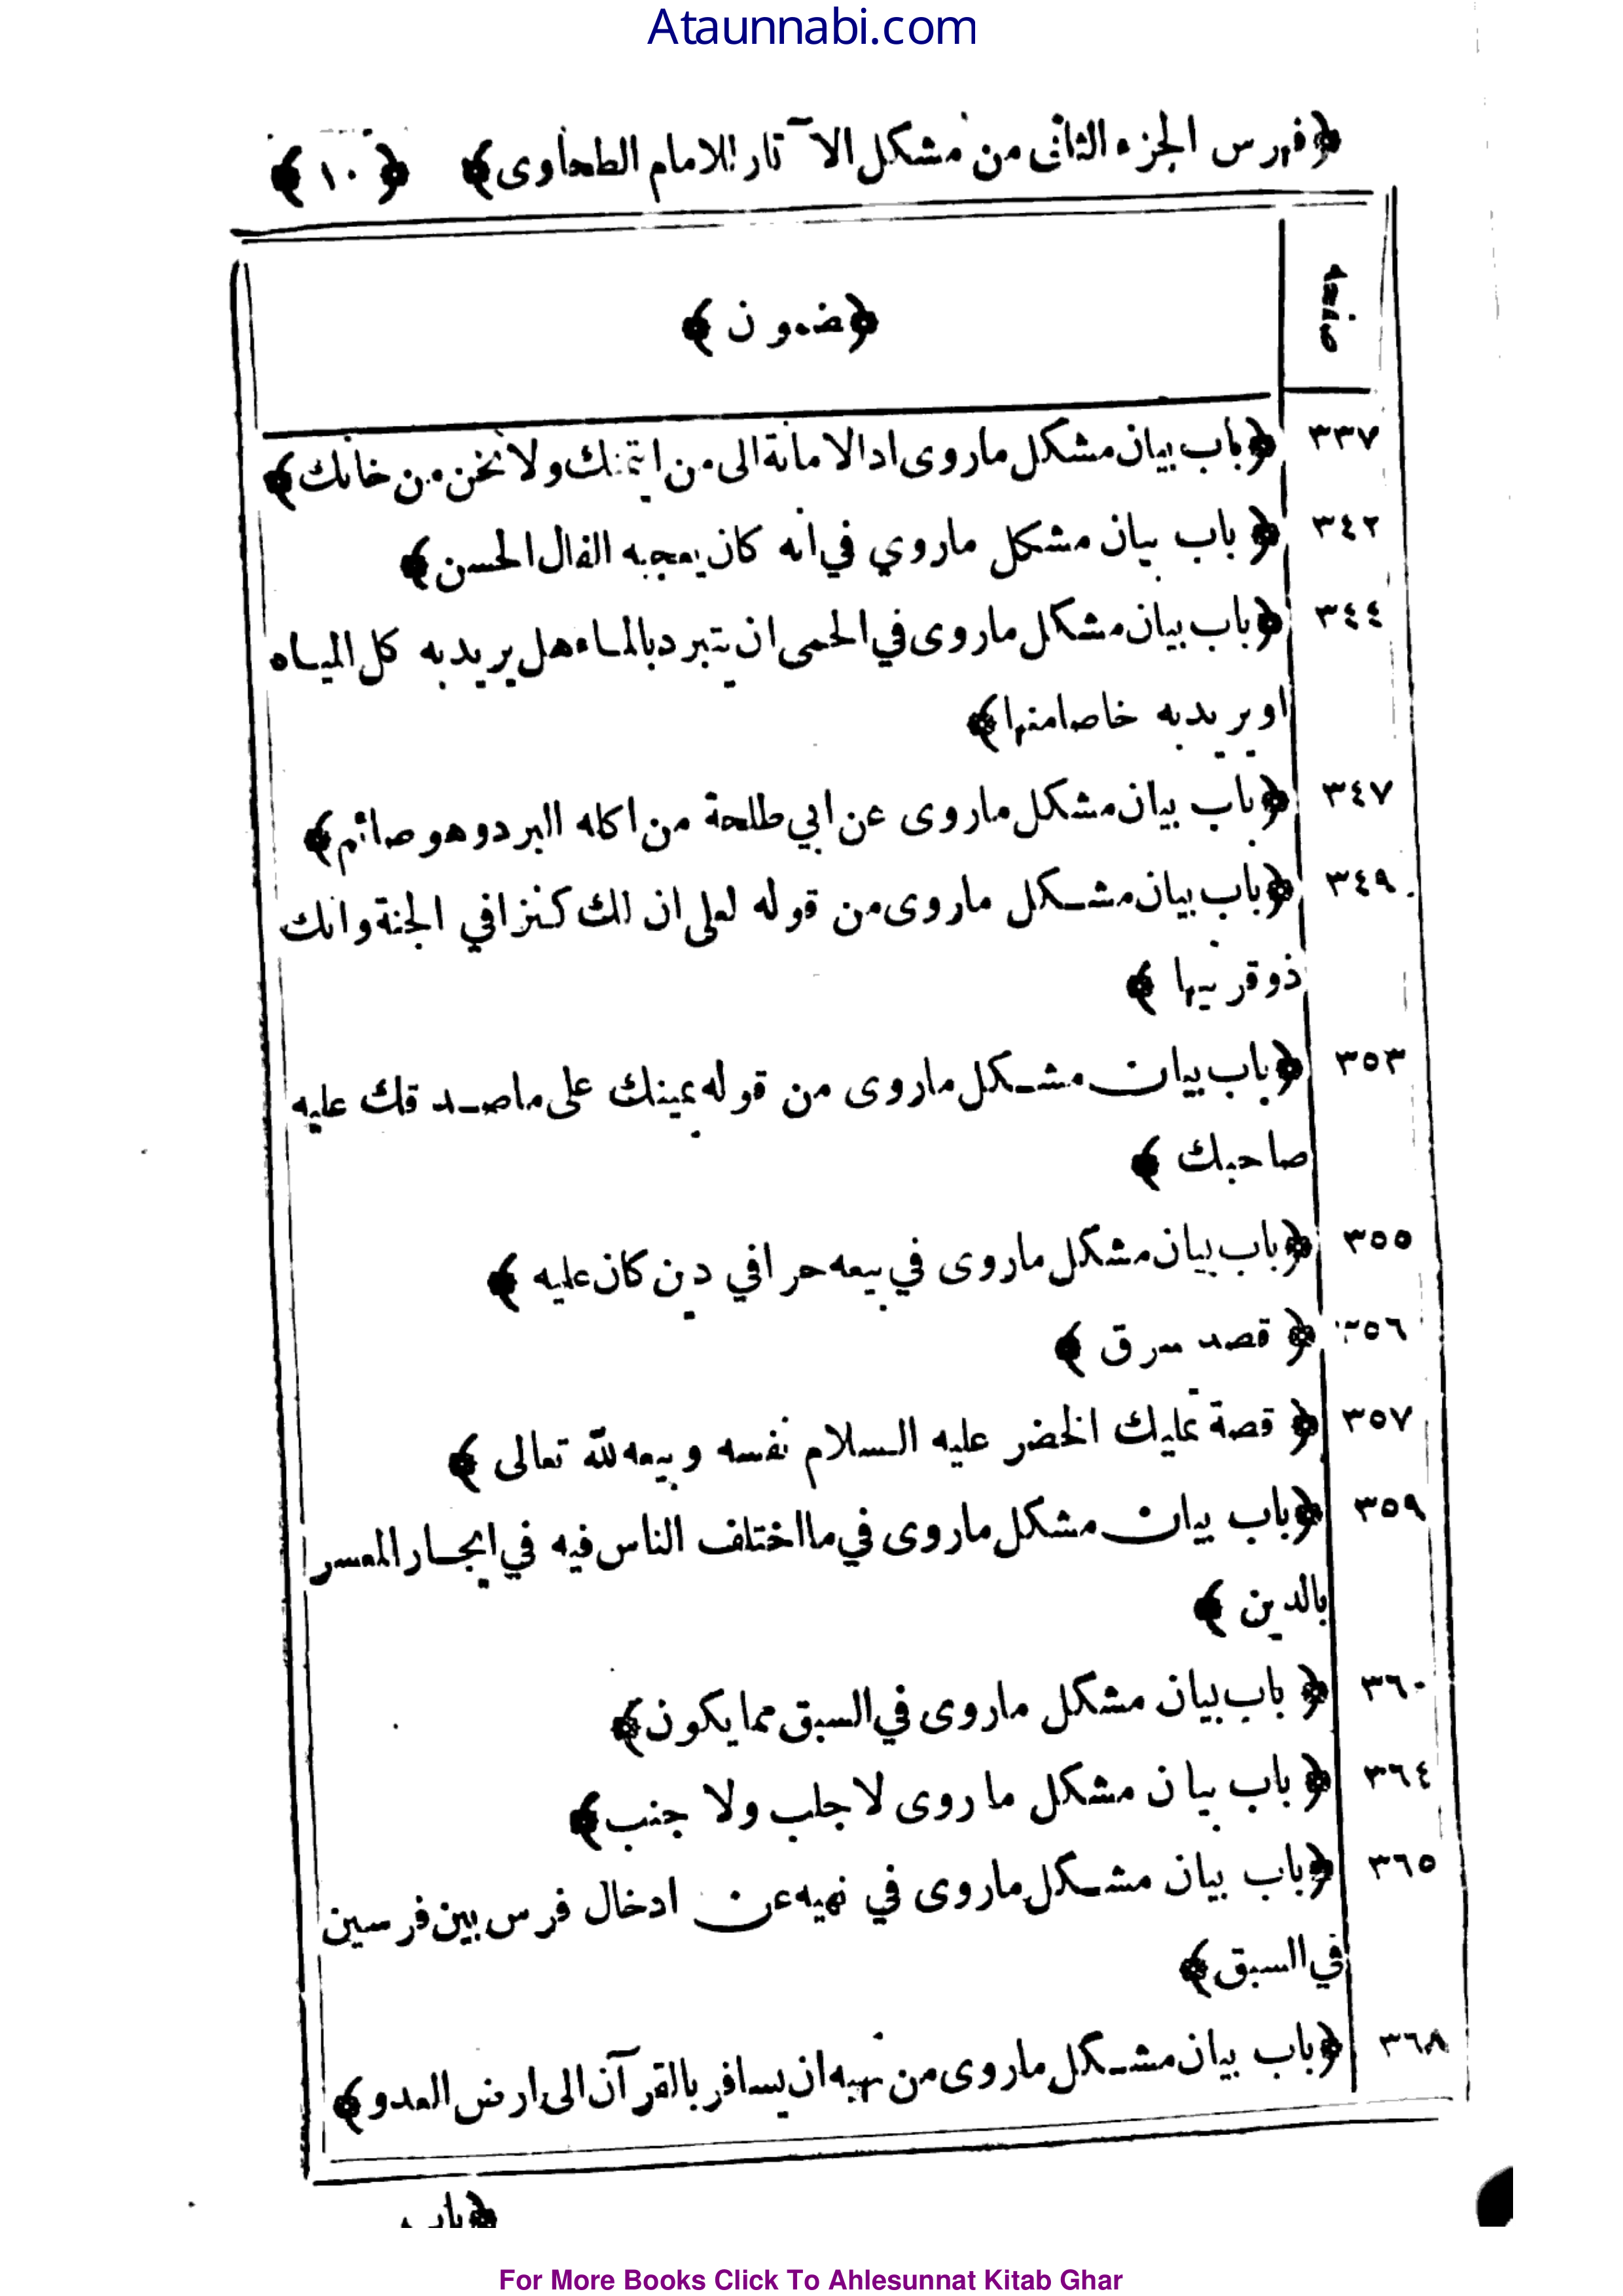 Ataunnabi.com
﴿فهرس الجزء الثانى من مشكل الآثار للامام الطحاوى﴾ ﴿١٠﴾
صفحه
﴿مضمون﴾
٣٣٧ ﴿باب بيان مشكل ماروى اد الامانة الى من ايتمنك ولا تخن من خانك﴾
٣٤٢ ﴿باب بيان مشكل ماروي في انه كان يعجبه الفال الحسن﴾
٣٤٤ ﴿باب بيان مشكل ماروى في الحمى ان يتبرد بالماء هل يريد به كل المياه
او يريد به خاصا منها﴾
٣٤٧ ﴿باب بيان مشكل ماروى عن ابي طلحة من اكله البرد وهو صائم﴾
٣٤٩ ﴿باب بيان مشكل ماروى من قوله لعلى ان لك كنزا في الجنة وانك
ذو قرنيها﴾
٣٥٣ ﴿باب بيان مشكل ماروى من قوله يمينك على ما صدقك عليه
صاحبك﴾
٣٥٥ ﴿باب بيان مشكل ماروى في بيعه حرا في دين كان عليه﴾
٣٥٦ ﴿قصد سرق﴾
٣٥٧ ﴿قصة تمليك الخضر عليه السلام نفسه وبيعه لله تعالى﴾
٣٥٩ ﴿باب بيان مشكل ماروى في ما اختلف الناس فيه في ايجار المعسر
بالدين﴾
٣٦٠ ﴿باب بيان مشكل ماروى في السبق مما يكون﴾
٣٦٤ ﴿باب بيان مشكل ماروى لا جلب ولا جنب﴾
٣٦٥ ﴿باب بيان مشكل ماروى في نهيه عن ادخال فرس بين فرسين
في السبق﴾
٣٦٨ ﴿باب بيان مشكل ماروى من نهيه ان يسافر بالقرآن الى ارض العدو﴾
﴿باب
For More Books Click To Ahlesunnat Kitab Ghar